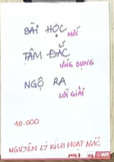 BÀI HỌC
MỚI
TÂM ĐẮC
ỨNG DỤNG
NGỘ RA
LỜI GIẢI
10.000
NGUYÊN LÝ KÍCH HOẠT NGÔ